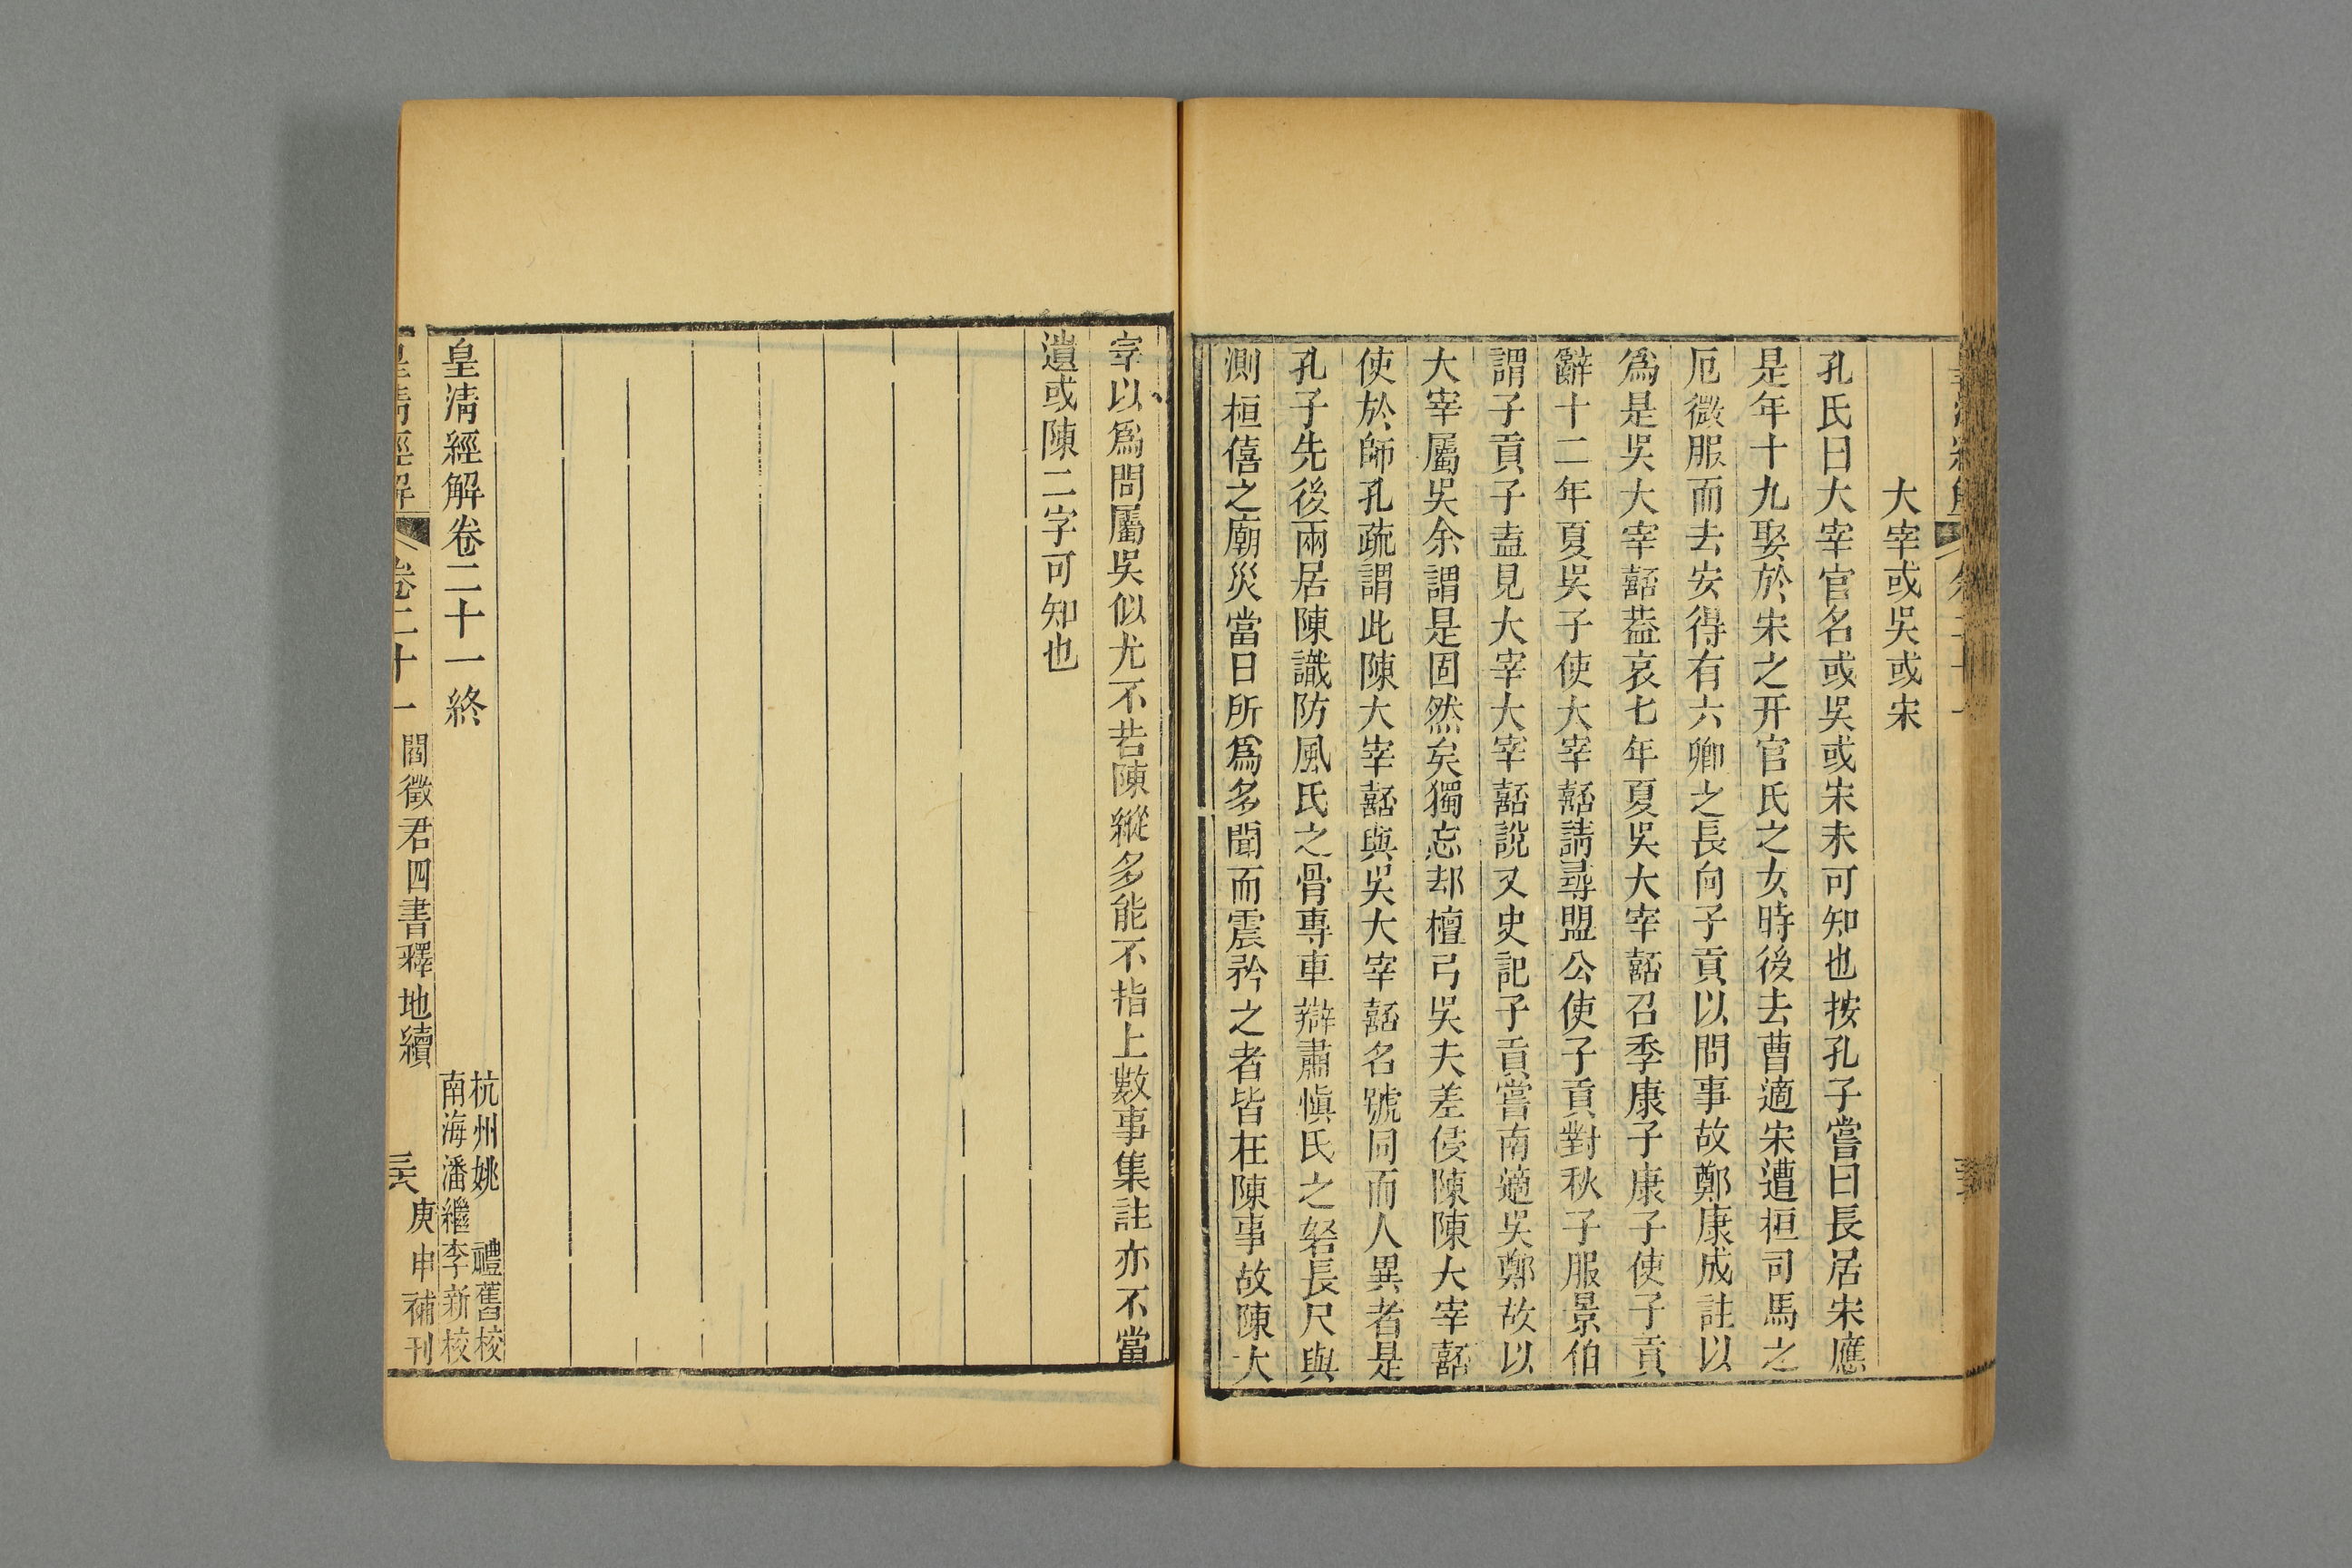 大宰或吳或宋
孔氏曰大宰官名或吳或宋未可知也按孔子嘗曰長居宋應
是年十九娶於宋之幵官氏之女時後去曹適宋遭桓司馬之
厄微服而去安得有六卿之長向子貢以問事故鄭康成註以
爲是吳大宰嚭葢哀七年夏吳大宰嚭召季康子康子使子貢
辭十二年夏吳子使大宰嚭請尋盟公使子貢對秋子服景伯
謂子貢子盍見大宰大宰嚭說又史記子貢嘗南適吳鄭故以
大宰屬吳余謂是固然矣獨忘却檀弓吳夫差侵陳陳大宰嚭
使於師孔疏謂此陳大宰嚭與吳大宰嚭名號同而人異者是
孔子先後兩居陳識防風氏之骨專車辯肅愼氏之砮長尺與
測桓僖之廟災當日所爲多聞而震矜之者皆在陳事故陳大
宰以爲問屬吳似尤不若陳縱多能不指上數事集註亦不當
遺或陳二字可知也
皇淸經解卷二十一終
杭州姚禮舊校
南海潘繼李新校
皇淸經解 卷二十一 閻徵君四書釋地續 庚申補刊